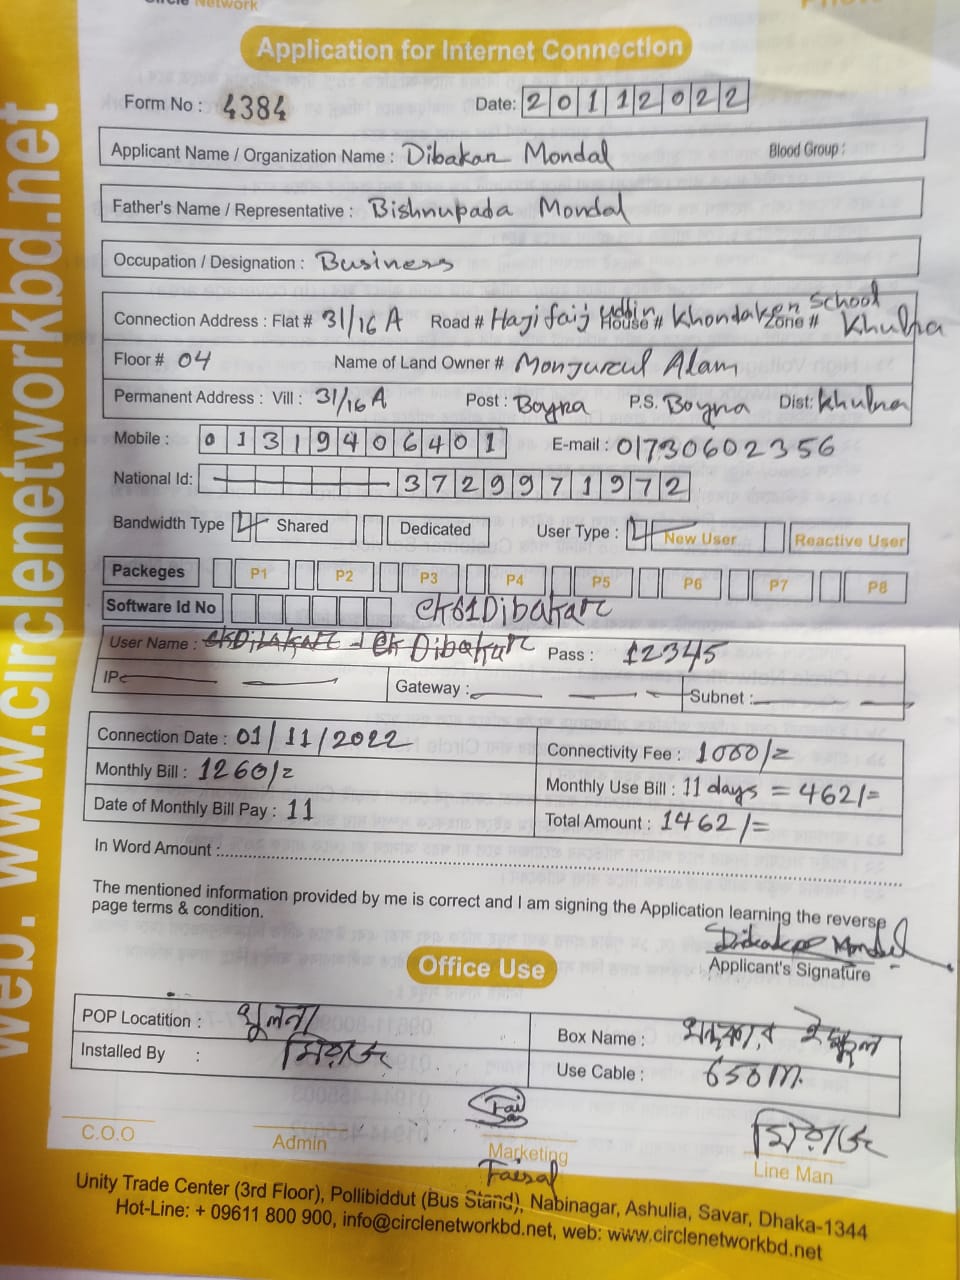 Circle Network
Application for Internet Connection
Form No : 4384 Date: 20112022
Applicant Name / Organization Name : Dibakar Mondal Blood Group :
Father's Name / Representative : Bishnupada Mondal
Occupation / Designation : Business
Connection Address : Flat # 31/16 A Road # Haji faij uddin House # Khondaker School Zone # Khulna
Floor # 04 Name of Land Owner # Monjurul Alam
Permanent Address : Vill : 31/16 A Post : Boyra P.S. Boyra Dist: Khulna
Mobile : 01319406401 E-mail : 01730602356
National Id: 3729971972
Bandwidth Type Shared Dedicated User Type : New User Reactive User
Packeges P1 P2 P3 P4 P5 P6 P7 P8
Software Id No ck61Dibakar
User Name : ckDibakar Pass : 12345
IP Gateway : Subnet :
Connection Date : 01/11/2022 Connectivity Fee : 1000/=
Monthly Bill : 1260/= Monthly Use Bill : 11 days = 462/=
Date of Monthly Bill Pay : 11 Total Amount : 1462/=
In Word Amount :
The mentioned information provided by me is correct and I am signing the Application learning the reverse
page terms & condition.
Dibakar Mondal
Applicant's Signature
Office Use
POP Locatition : খুলনা Box Name :
Installed By : মিরাজ Use Cable : 650m.
C.O.O Admin Marketing মিরাজ Line Man
Faisal
Unity Trade Center (3rd Floor), Pollibiddut (Bus Stand), Nabinagar, Ashulia, Savar, Dhaka-1344
Hot-Line: + 09611 800 900, info@circlenetworkbd.net, web: www.circlenetworkbd.net
web. www.circlenetworkbd.net